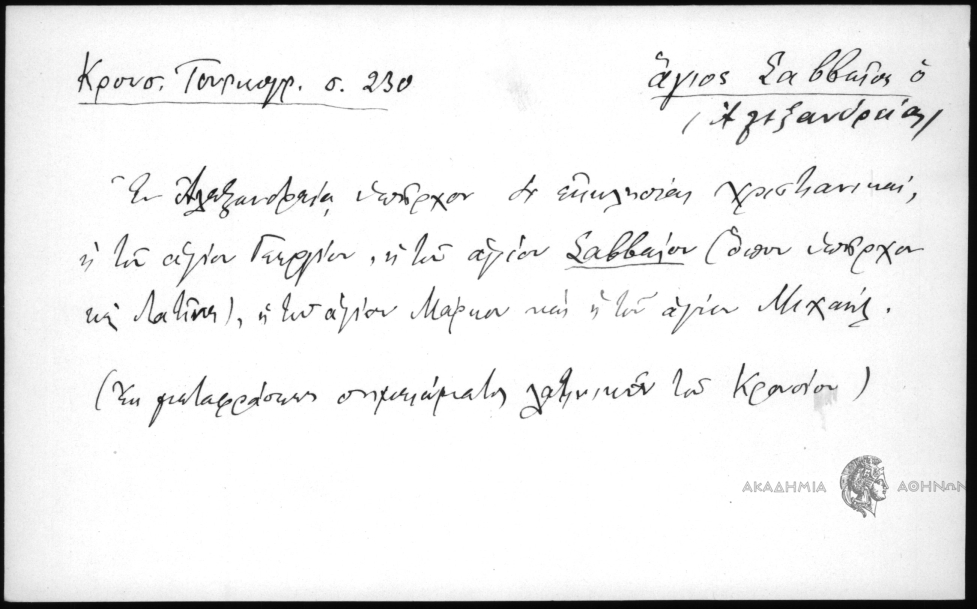 Κρουσ. Τουρκογρ. σ. 230
ἅγιος Σαββαῖος ὁ
(Ἀλεξανδρείας)
Ἐν Ἀλεξανδρείᾳ ὑπῆρχον δ' ἐκκλησίαι χριστιανικαί,
ἡ τοῦ ἁγίου Γεωργίου, ἡ τοῦ ἁγίου Σαββαίου (ὅπου ὑπῆρχον
καὶ Λατῖνοι), ἡ τοῦ ἁγίου Μάρκου καὶ ἡ τοῦ ἁγίου Μιχαήλ.
(Ἐκ μεταφράσεως σημειώματος λατινικοῦ τοῦ Κρουσίου)
ΑΚΑΔΗΜΙΑ ΑΘΗΝΩΝ